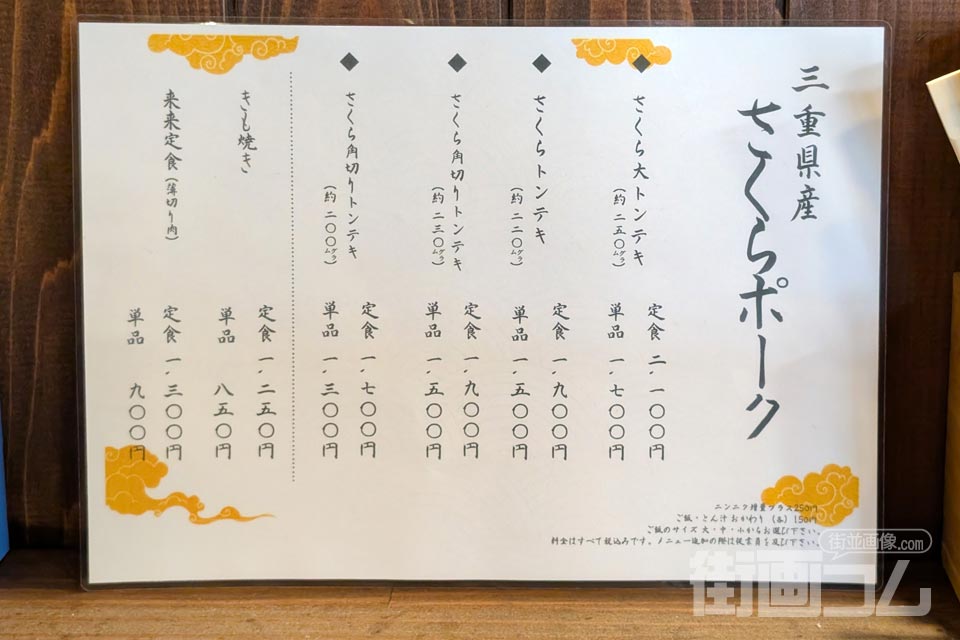 三重県産
さくらポーク
◆ さくら大トンテキ
(約 二五〇グラム)
定食 二,一〇〇円
単品 一,七〇〇円
◆ さくらトンテキ
(約 二二〇グラム)
定食 一,九〇〇円
単品 一,五〇〇円
◆ さくら角切りトンテキ
(約 二三〇グラム)
定食 一,九〇〇円
単品 一,五〇〇円
◆ さくら角切りトンテキ
(約 二〇〇グラム)
定食 一,七〇〇円
単品 一,三〇〇円
きも焼き
定食 一,二五〇円
単品 八五〇円
来来定食(薄切り肉)
定食 一,三〇〇円
単品 九〇〇円
ニンニク増量プラス250円
ご飯・とん汁 おかわり (各) 150円
ご飯のサイズ 大・中・小からお選び下さい。
料金はすべて税込みです。メニュー追加の際は従業員を及び下さい。
街並画像.com
街画コム